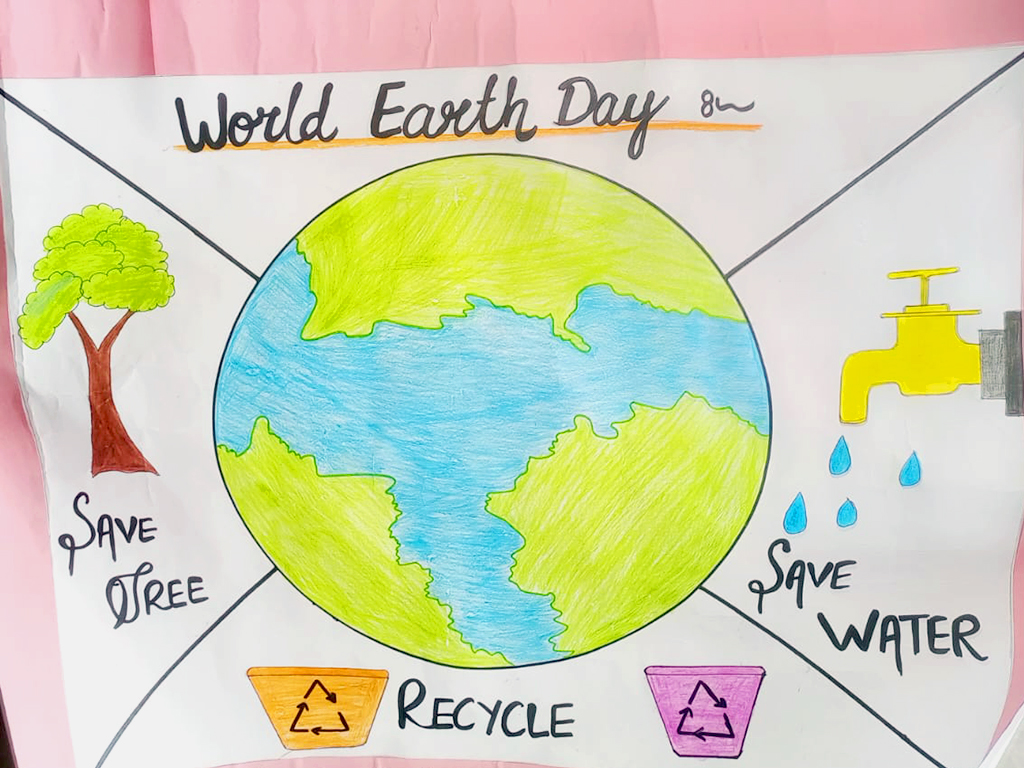 World Earth Day :~
SAVE
TREE
SAVE
WATER
RECYCLE